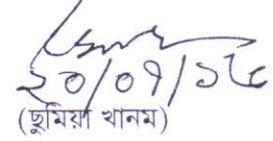 ২০/০৭/১৬
(ছুমিয়া খানম)